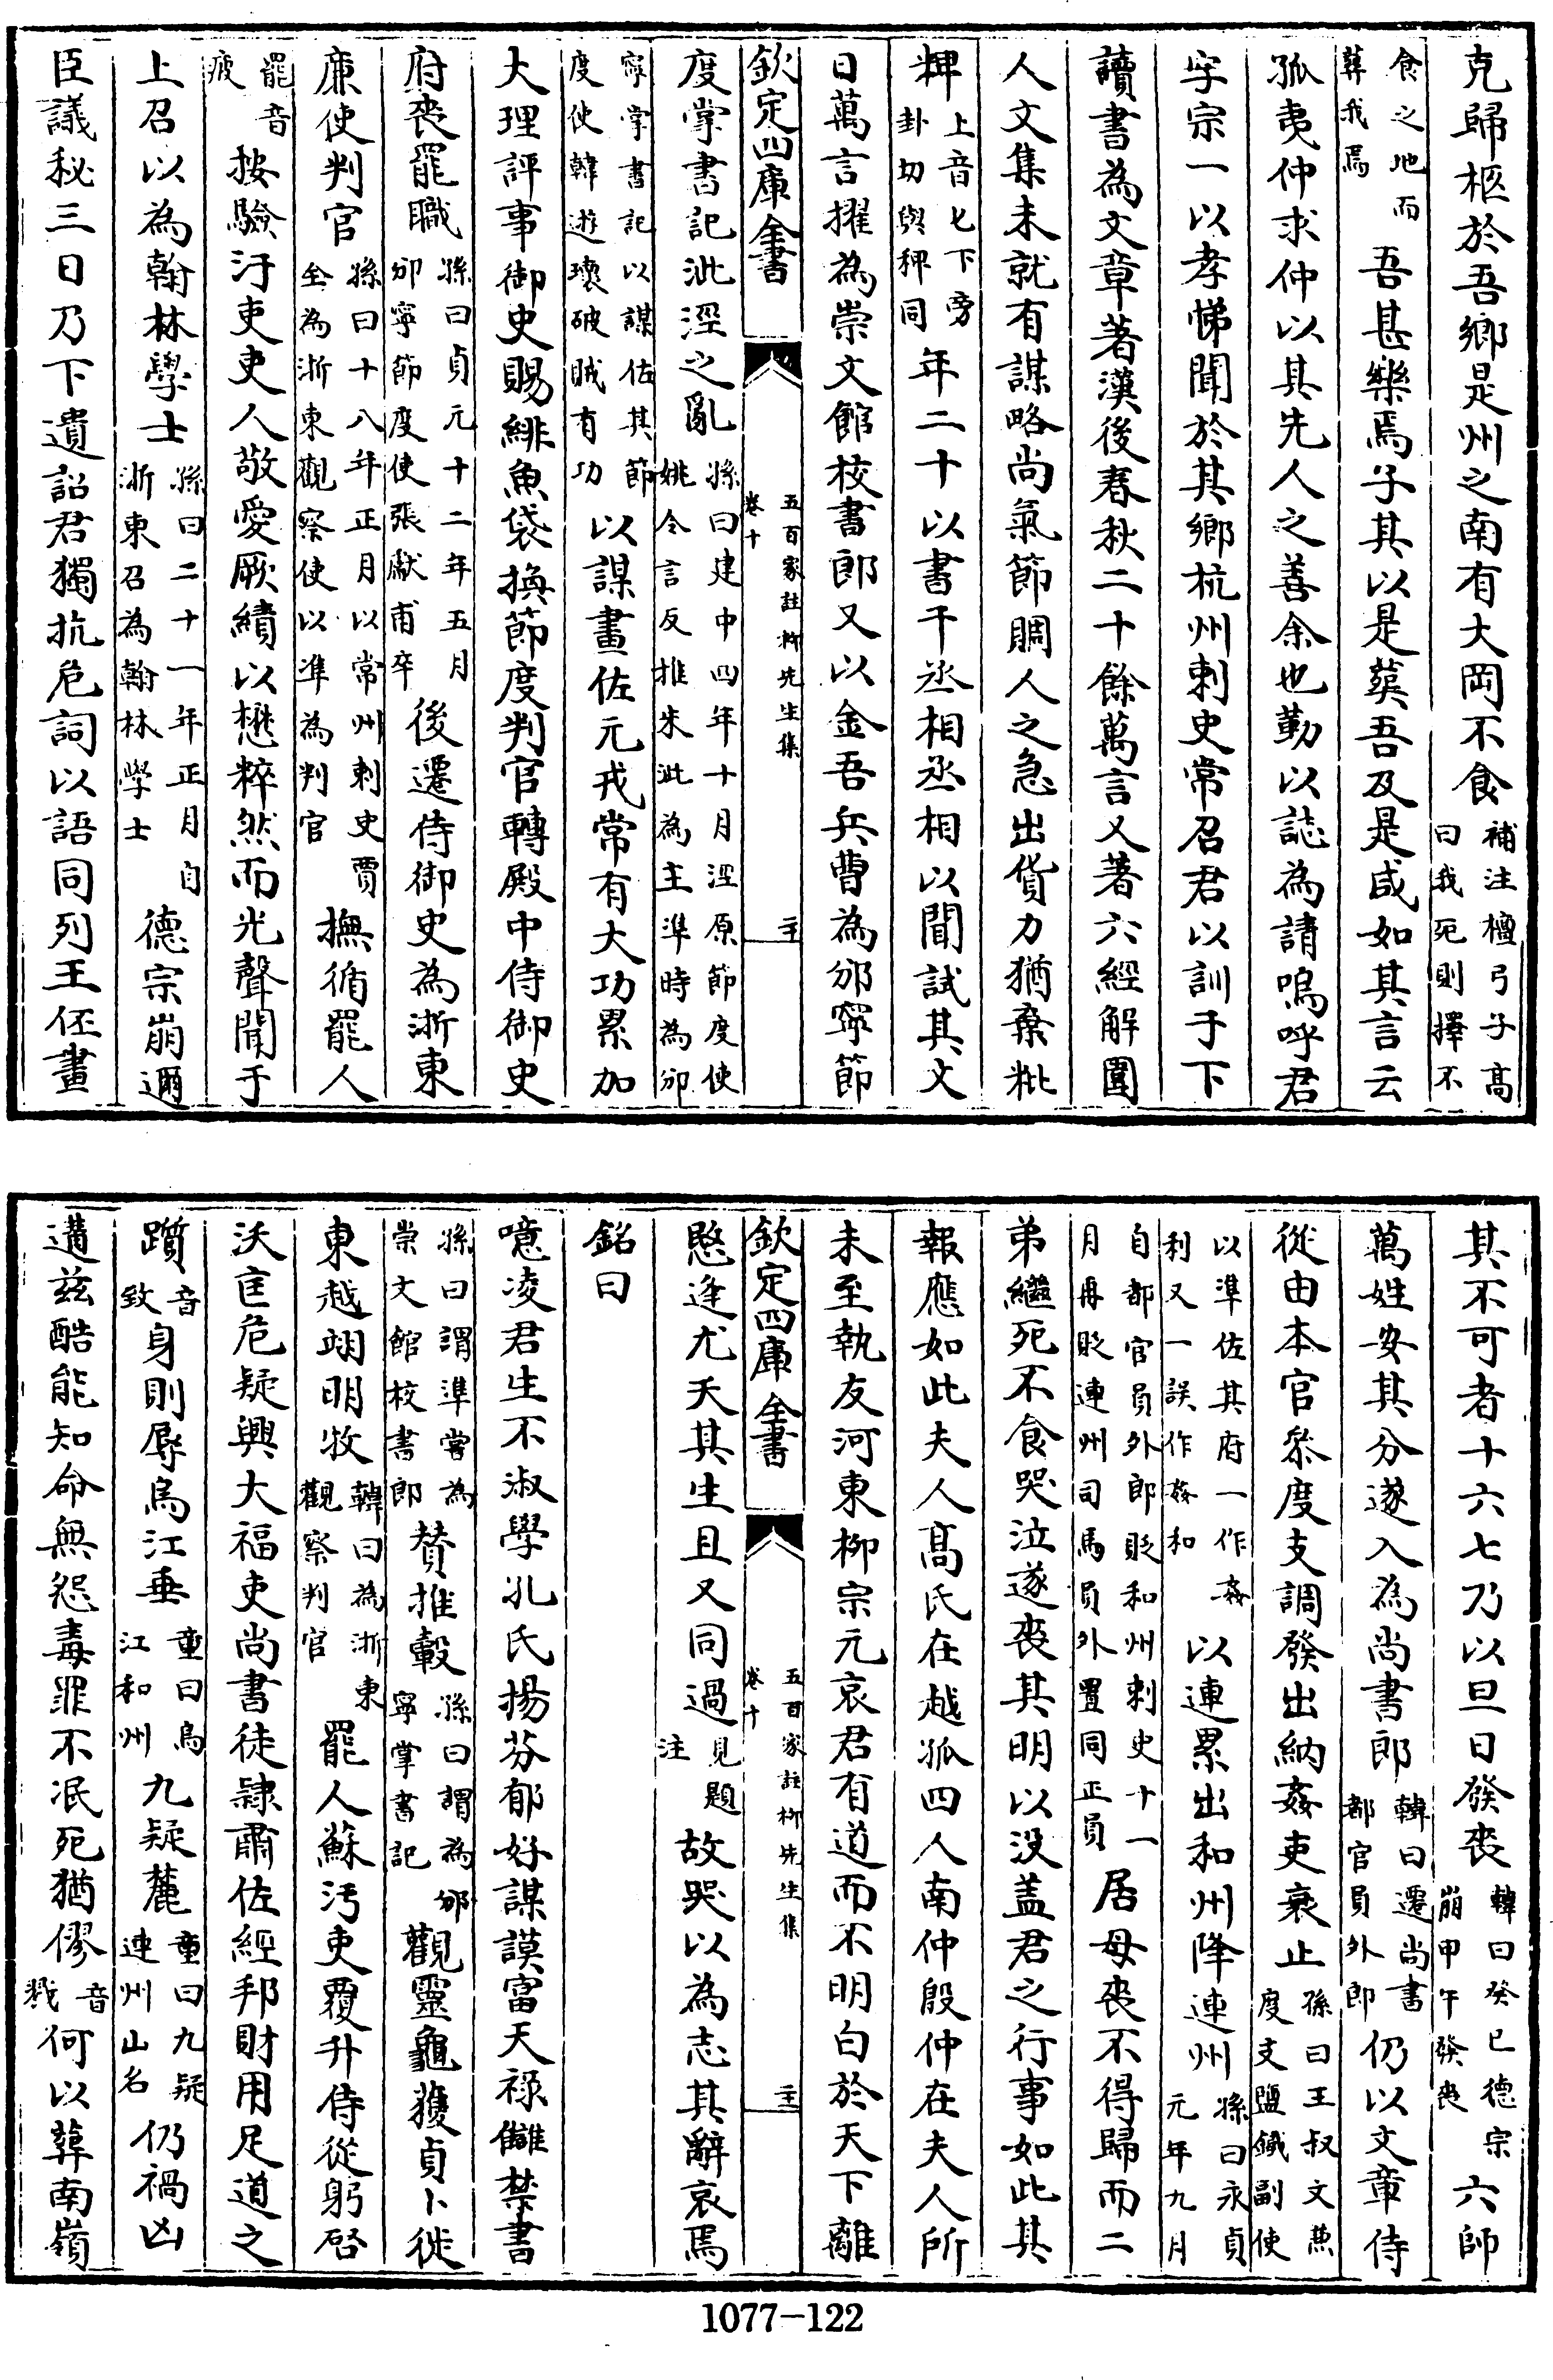 克歸柩於吾鄉是州之南有大岡不食補注檀弓子高曰我死則擇不
食之地而葬我焉吾甚樂焉子其以是葬吾及是咸如其言云
孤夷仲求仲以其先人之善余也勤以誌為請嗚呼君
字宗一以孝悌聞於其鄉杭州刺史常召君以訓于下
讀書為文章著漢後春秋二十餘萬言又著六經解圍
人文集未就有謀略尚氣節賙人之急出貨力猶棄粃
粺上音匕下旁卦切與稗同年二十以書干丞相丞相以聞試其文
日萬言擢為崇文館校書郎又以金吾兵曹為邠寧節
欽定四庫全書 五百家註柳先生集卷十
度掌書記泚涇之亂孫曰建中四年十月涇原節度使姚令言反推朱泚為主準時為邠
寧掌書記以謀佐其節度使韓遊瓌破賊有功以謀畫佐元戎常有大功累加
大理評事御史賜緋魚袋換節度判官轉殿中侍御史
府喪罷職孫曰貞元十二年五月邠寧節度使張獻甫卒後遷侍御史為浙東
廉使判官孫曰十八年正月以常州刺史賈全為浙東觀察使以準為判官撫循罷人
罷音疲按驗汙吏吏人敬愛厥績以懋粹然而光聲聞于
上召以為翰林學士孫曰二十一年正月自浙東召為翰林學士德宗崩邇
臣議秘三日乃下遺詔君獨抗危詞以語同列王伾畫
其不可者十六七乃以旦日發喪韓曰癸巳德宗崩甲午發喪六師
萬姓安其分遂入為尚書郎韓曰遷尚書都官員外郎仍以文章侍
從由本官叅度支調發出納姦吏衰止孫曰王叔文兼度支鹽鐵副使
以準佐其府一作姦利又一誤作姦和以連累出和州降連州孫曰永貞元年九月
自都官員外郎貶和州刺史十一月再貶連州司馬員外置同正員居母喪不得歸而二
弟繼死不食哭泣遂喪其明以沒蓋君之行事如此其
報應如此夫人高氏在越孤四人南仲殷仲在夫人所
未至執友河東柳宗元哀君有道而不明白於天下離
欽定四庫全書 五百家註柳先生集卷十
愍逢尤夭其生且又同過見題注故哭以為志其辭哀焉
銘曰
噫凌君生不淑學孔氏揚芬郁好謀謨富天祿儺禁書
孫曰謂準嘗為崇文館校書郎贊推轂孫曰謂為邠寧掌書記觀靈龜獲貞卜從
東越翊明牧韓曰為浙東觀察判官罷人蘇汚吏覆升侍從躬啓
沃匡危疑興大福吏尚書徒隸肅佐經邦財用足道之
躓音致身則辱烏江垂童曰烏江和州九疑麓童曰九疑連州山名仍禍凶
遘兹酷能知命無怨毒罪不泯死猶僇音戮何以葬南嶺
1077-122